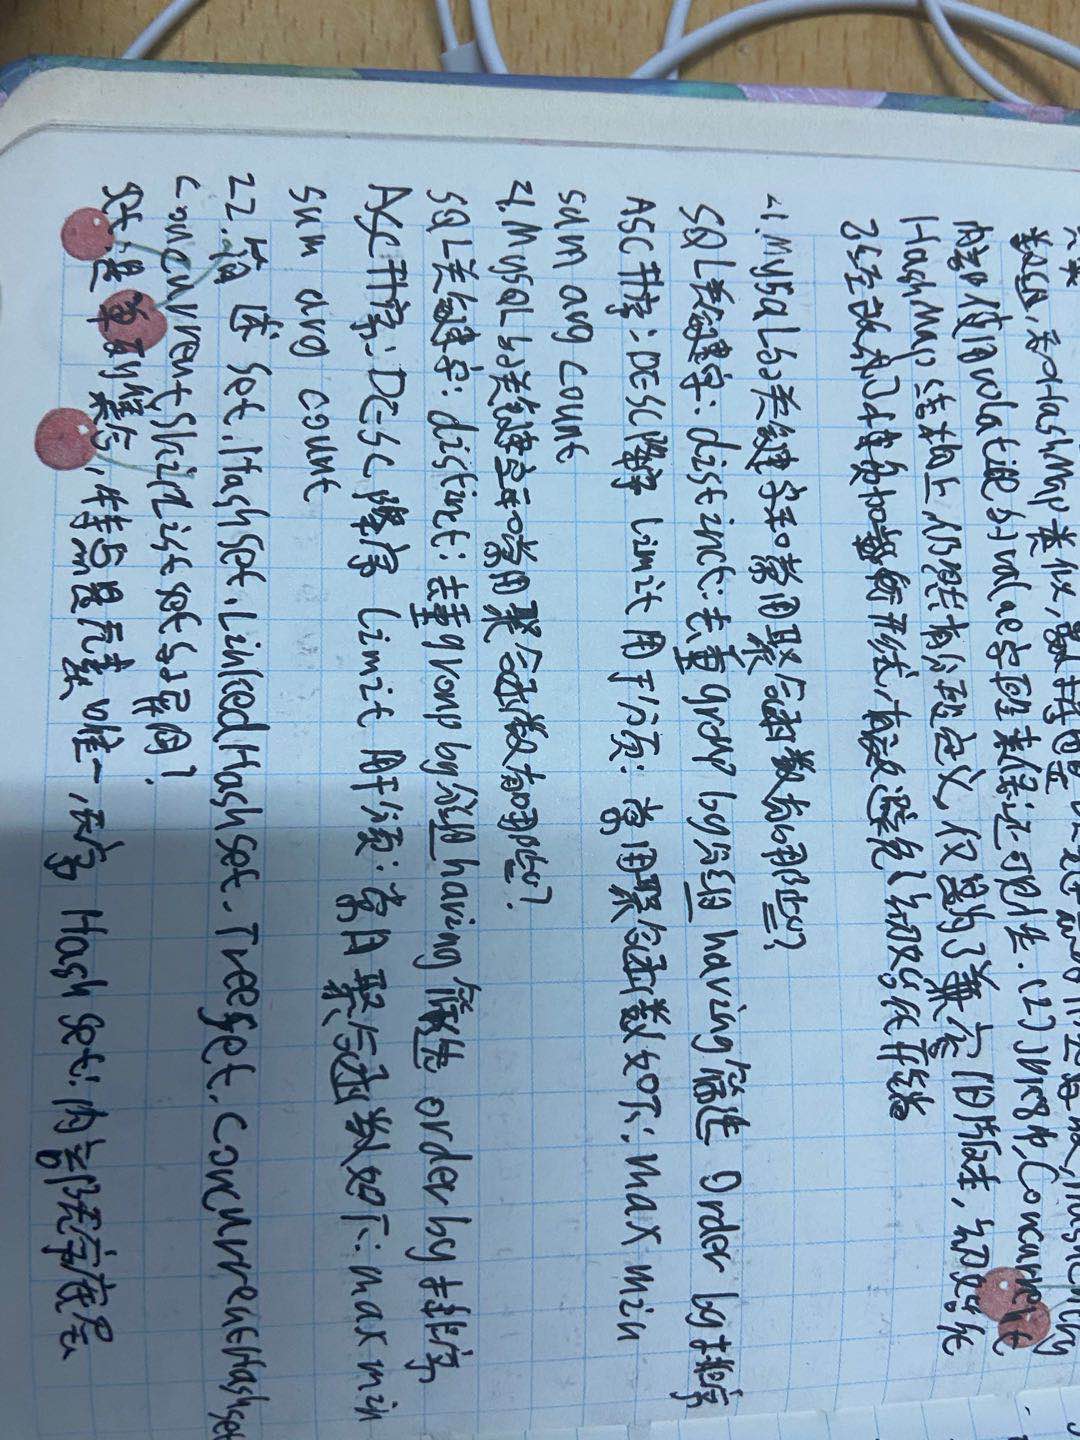 数组,和HashMap类似,最
内部使用volatile的value字段来保证可见性.(2)JDK8中,Concurrent
HashMap结构上仍然有分段定义,仅是为了兼容旧版,初始化
改为了懒加载形式,有效避免了初始化开销
21.MySQL的关键字和常用聚合函数有哪些?
SQL关键字:distinct:去重group by分组 having筛选 Order by排序
ASC升序:DESC降序 limit用于分页:常用聚合函数如下:max min
sum avg count
21.MySQL的关键字和常用聚合函数有哪些?
SQL关键字:distinct:去重group by分组having筛选 order by排序
ASC升序:DESC降序 limit用于分页:常用聚合函数如下:max min
sum avg count
22.简述 Set.HashSet.LinkedHashset.Treeset.ConcurrentHashset
ConcurrentSkipListset的异同?
set:是单列集合,特点是元素唯一,无序 Hashset:内部没有底层